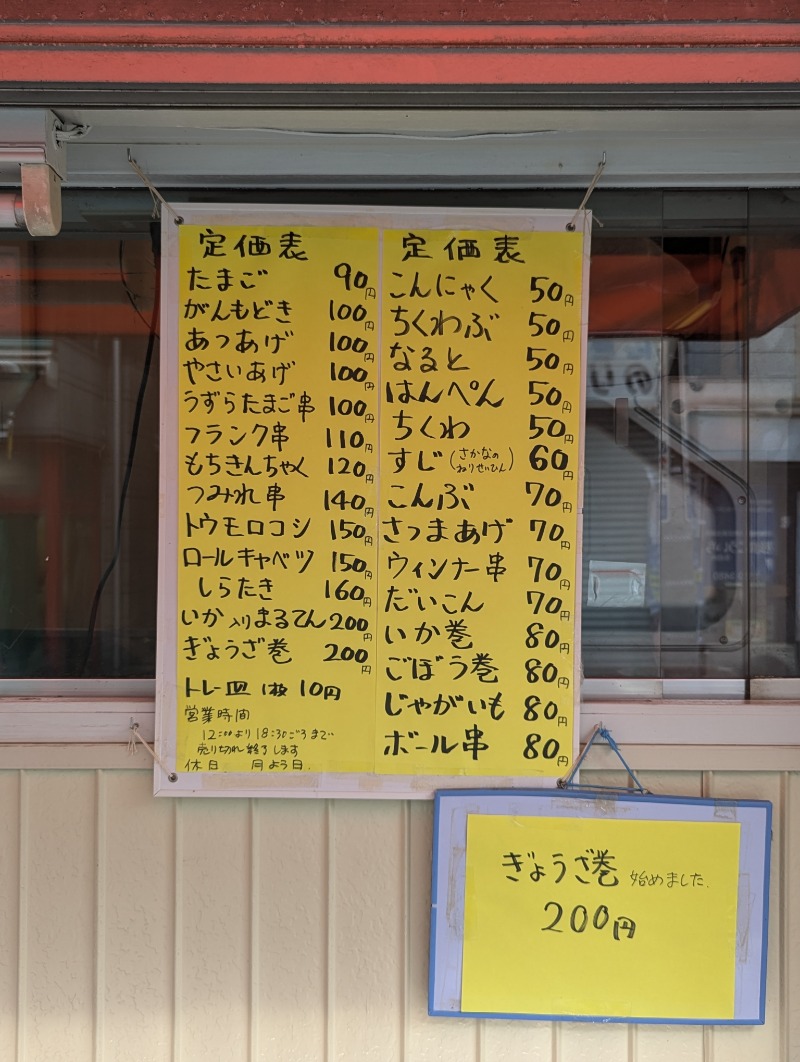 定価表
たまご 90円
がんもどき 100円
あつあげ 100円
やさいあげ 100円
うずらたまご串 100円
フランク串 110円
もちきんちゃく 120円
つみれ串 140円
トウモロコシ 150円
ロールキャベツ 150円
しらたき 160円
いか入りまるてん 200円
ぎょうざ巻 200円
トレー皿 1枚 10円
営業時間
12:00より18:30ごろまで
売り切れ終了します
休日 月よう日.
定価表
こんにゃく 50円
ちくわぶ 50円
なると 50円
はんぺん 50円
ちくわ 50円
すじ(さかなのねりせいひん) 60円
こんぶ 70円
さつまあげ 70円
ウィンナー串 70円
だいこん 70円
いか巻 80円
ごぼう巻 80円
じゃがいも 80円
ボール串 80円
ぎょうざ巻 始めました.
200円